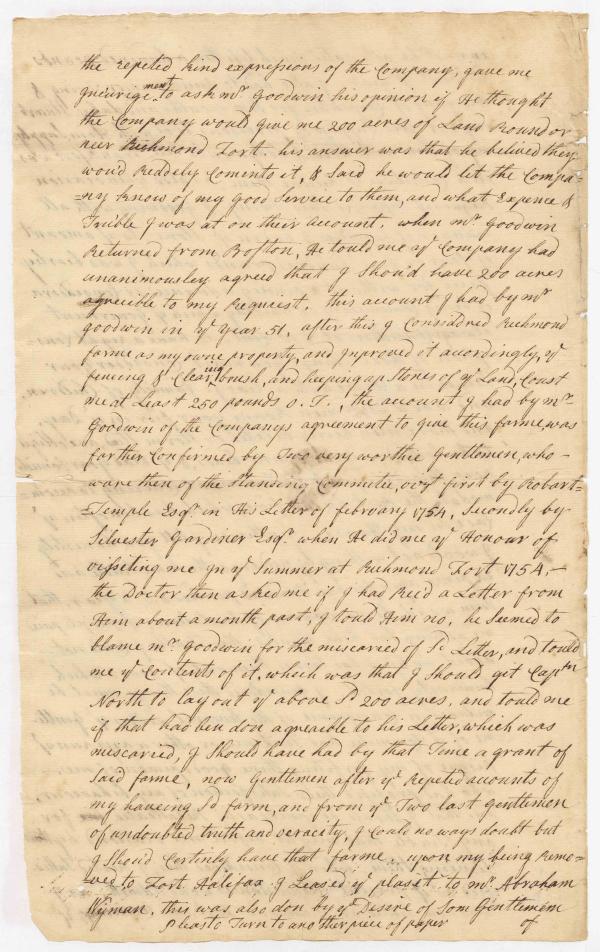 the repeted kind expressions of the Company, gave me
gncurige,ment to ask mr Goodwin his opinion if He thought
the Company would give me 200 acres of Land Round or
neer Richmond Fort. his answer was that he belived they
woud Reddely Coments it, & Said he would let the Compa-
=ny know of my Good Service to them, and what Expence &
Truble I was at on their account. when mr Goodwin
Returned from Boston, He tould me ye Company had
unanimousley agreed that I Shou'd have 200 acres
agreeible to my Requist. this account I had by mr
Goodwin in ye Year 51. after this I Considred Richmond
farme as my owne property, and Jnproved it accordingly, ye
fencing & Clearing brush, and keeping up Stones of ye Land, Coust
me at Least 250 pounds O. T., the account I had by mr
Goodwin of the Companys agreement to give this farme, was
farther Confirmed by Two very worthie Gentlemen, who -
ware then of the Standing Commitee, vizt first by Robart-
=Temple Esqr in His Letter of february 1754, Secondly by
Silvester Gardiner Esqr when He did me ye Honour of
vissiting me Jn ye Summer at Richmond Fort 1754, -
the Doctor then asked me if I had Reid a Letter from
Him about a month past, I tould Him no, he Seemed to
blame mr Goodwin for the miscaried of Sd Letter, and tould
me ye Contents of it, which was that I Should git Captn
North to lay out ye above Sd 200 acres, and tould me
if that had ben don agreaible to his Letter, which was
miscaried, I Should have had by that Time a grant of
Said farme, now Gentlemen after ye Repeted accounts of
my haveing Sd farm, and from ye Two last Gentlemen
of undoubted truth and veracity, I Could no ways doubt but
I Shoud Certinly have that farme. upon my being Remo-
=ved to Fort Halifax I Leased ye plaset to mr Abraham
Wyman, this was also don by ye Desire of Som Gentlemen
Pleas to Turn to another piece of paper of